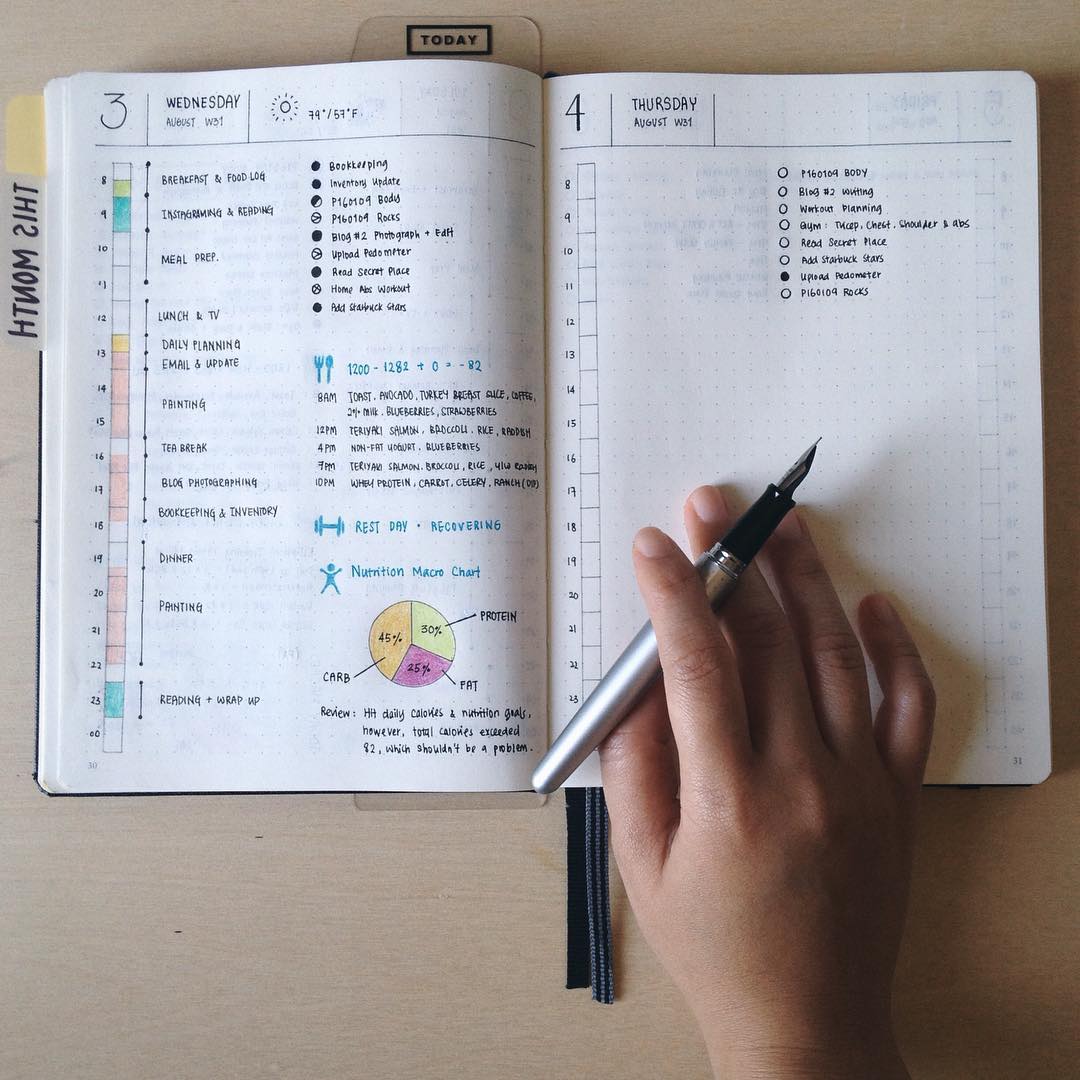 TODAY
THIS MONTH
3
WEDNESDAY
AUGUST W31
79°/57°F
8
9
10
11
12
13
14
15
16
17
18
19
20
21
22
23
00
BREAKFAST & FOOD LOG
INSTAGRAMING & READING
MEAL PREP.
LUNCH & TV
DAILY PLANNING
EMAIL & UPDATE
PAINTING
TEA BREAK
BLOG PHOTOGRAPHING
BOOKKEEPING & INVENTORY
DINNER
PAINTING
READING + WRAP UP
Bookkeeping
Inventory Update
P160109 Body
P160109 Rocks
Blog #2 Photograph + Edit
Upload Pedometer
Read Secret Place
Home Abs Workout
Add Starbuck Stars
1200 - 1282 + 0 = -82
8AM TOAST, AVOCADO, TURKEY BREAST SLICE, COFFEE,
2% milk, BLUEBERRIES, STRAWBERRIES
12PM TERIYAKI SALMON, BROCCOLI, RICE, RADDISH
4PM NON-FAT YOGURT, BLUEBERRIES
7PM TERIYAKI SALMON, BROCCOLI, RICE,
10PM WHEY PROTEIN, CARROT, CELERY, RANCH (DIP)
REST DAY · RECOVERING
Nutrition Macro Chart
45%
30%
25%
PROTEIN
CARB
FAT
Review: Hit daily calories & nutrition goals,
however, total calories exceeded
82, which shouldn't be a problem.
30
4
THURSDAY
AUGUST W31
8
9
10
11
12
13
14
15
16
17
18
19
20
21
22
23
P160109 BODY
Blog #2 Writing
Workout Planning
Gym: Tricep, Chest, Shoulder & abs
Read Secret Place
Add Starbuck Stars
Upload Pedometer
P160109 ROCKS
31